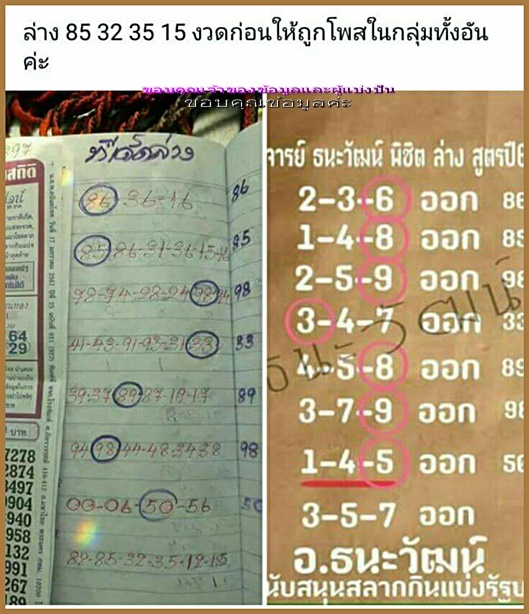 ล่าง 85 32 35 15 งวดก่อนให้ถูกโพสในกลุ่มทั้งอัน
ค่ะ
ขอบคุณเจ้าของข้อมูลและผู้แบ่งปัน
ขอบคุณข้อมูลค่ะ
297
สถิติ
64
29
บาท
7278
2874
3497
9904
940
958
132
991
267
189
86-36-16 86
85-86-31-36-15-16 85
98-94-28-24-98-94 98
41-43-91-93-31-33 33
39-37-89-87-19-17 89
94-98-44-48-34-38 98
00-06-50-56 50
89-85-32-35-12-15
จารย์ ธนะวัฒน์ พิชิต ล่าง สูตรปี6
2-3-6 ออก 86
1-4-8 ออก 85
2-5-9 ออก 98
3-4-7 ออก 33
4-5-8 ออก 89
3-7-9 ออก 98
1-4-5 ออก 50
3-5-7 ออก
ธนะวัฒน์
อ.ธนะวัฒน์
นับสนุนสลากกินแบ่งรัฐบ